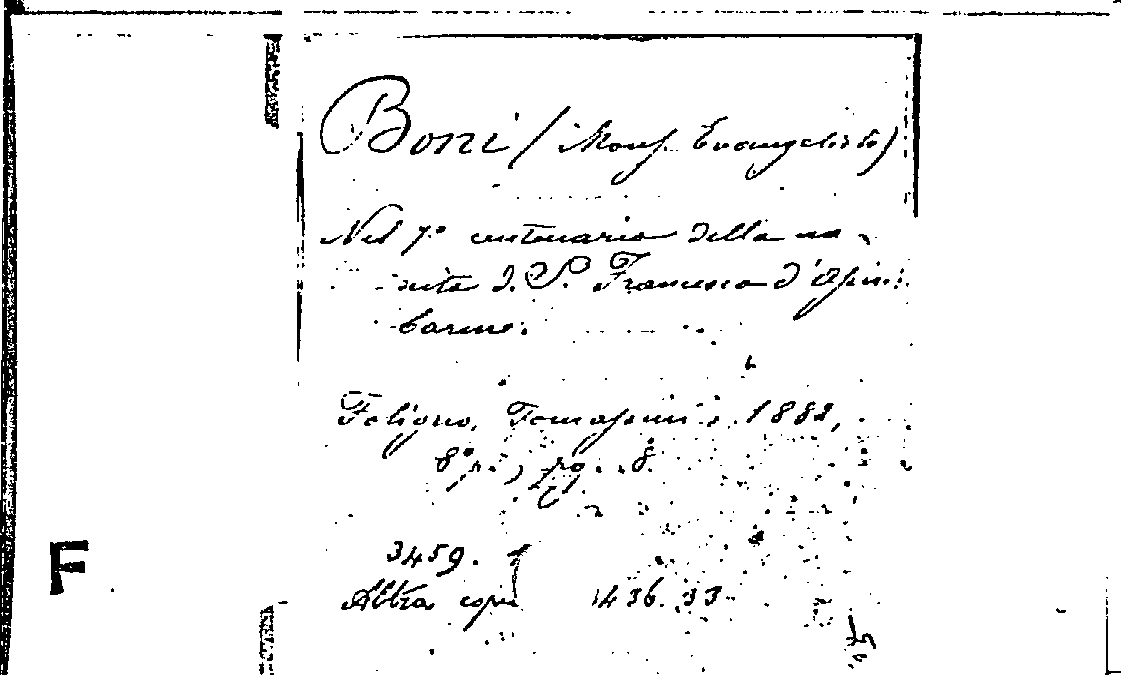 Boni (Mons. Evangelista)
Nel 7° centenario della na-
scita di S. Francesco d'Assisi.
Carme.
Foligno, Tomassini, 1882,
8°p., pg. 8.
3459.
F
Altra copia 1436. 33